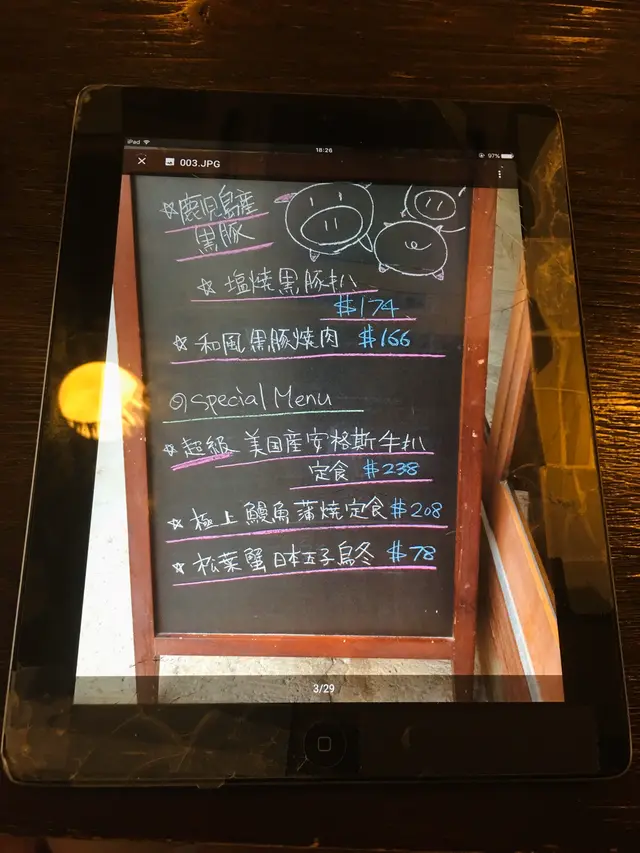 iPad
18:26
97%
× 003.JPG
☆鹿児島産
黒豚
☆ 塩焼黒豚扒
$174
☆ 和風黒豚焼肉 $166
Special Menu
☆超級 美国産安格斯牛扒
定食 $238
☆ 極上鰻魚蒲焼定食 $208
☆ 松葉蟹日本五子烏冬 $78
3/29